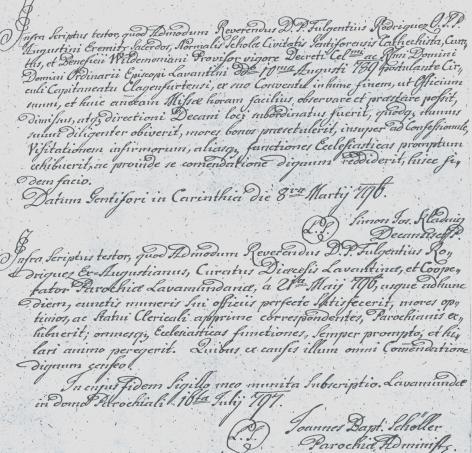 Infra Scriptus testor, quod Admodum Reverendus D. P. Fulgentius Rodriques O. S. P.
Augustini Eremitæ Sacerdos, Normalis Scholæ Civitatis Gentiforensis Cathechista, Cura-
tus, et Beneficii Waldemoniani Provisor vigore Decreti Cel^mi ac R^mi Domini
Domini Ordinarii Episcopi Lavantini 10^ma Augusti 789 postulante Cir-
culi Capitaneatu Clagenfurtensi, ex suo Conventu in hunc finem, ut Officium
suum, et huic annexam Missæ horam facilius observare et præstare possit,
dimissus, atque directioni Decani loci subordinatus fuerit, quodque munus
suum diligenter obiverit, mores bonos præsetulerit, insuper ad Confessionale,
Visitationem infirmorum, aliasque functiones Ecclesiasticas promptum
exhibuerit, ac proinde se comendatione dignum reddiderit, hisce fi-
dem facio.
Datum Gentifori in Carinthia die 8^va Martij 796.
L. S. Simon Jos.
Decanus
Infra Scriptus testor, quod Admodum Reverendus D. P. Fulgentius Ro-
driques Ex-Augustianus, Curatus Diœcesis Lavantinæ, et Coope-
rator Parochiæ Lavamundanæ, a 796, usque ad hunc
diem, cunctis muneris sui officiis perfecte satisfecerit, mores op-
timos, ac Statui Clericali apprime correspondentes, Parochianis ex-
hibuerit; omnesque Ecclesiasticas functiones, semper prompto, et hi-
lari animo peregerit. Quibus ex causis illum omni Comendatione
dignum censeo.
In cujus fidem Sigillo meo munita Subscriptio. Lavamundæ
in domo Parochiali 16^ta Julij 797.
L. S. Joannes Bapt. Schöller
Parochiæ Administr.